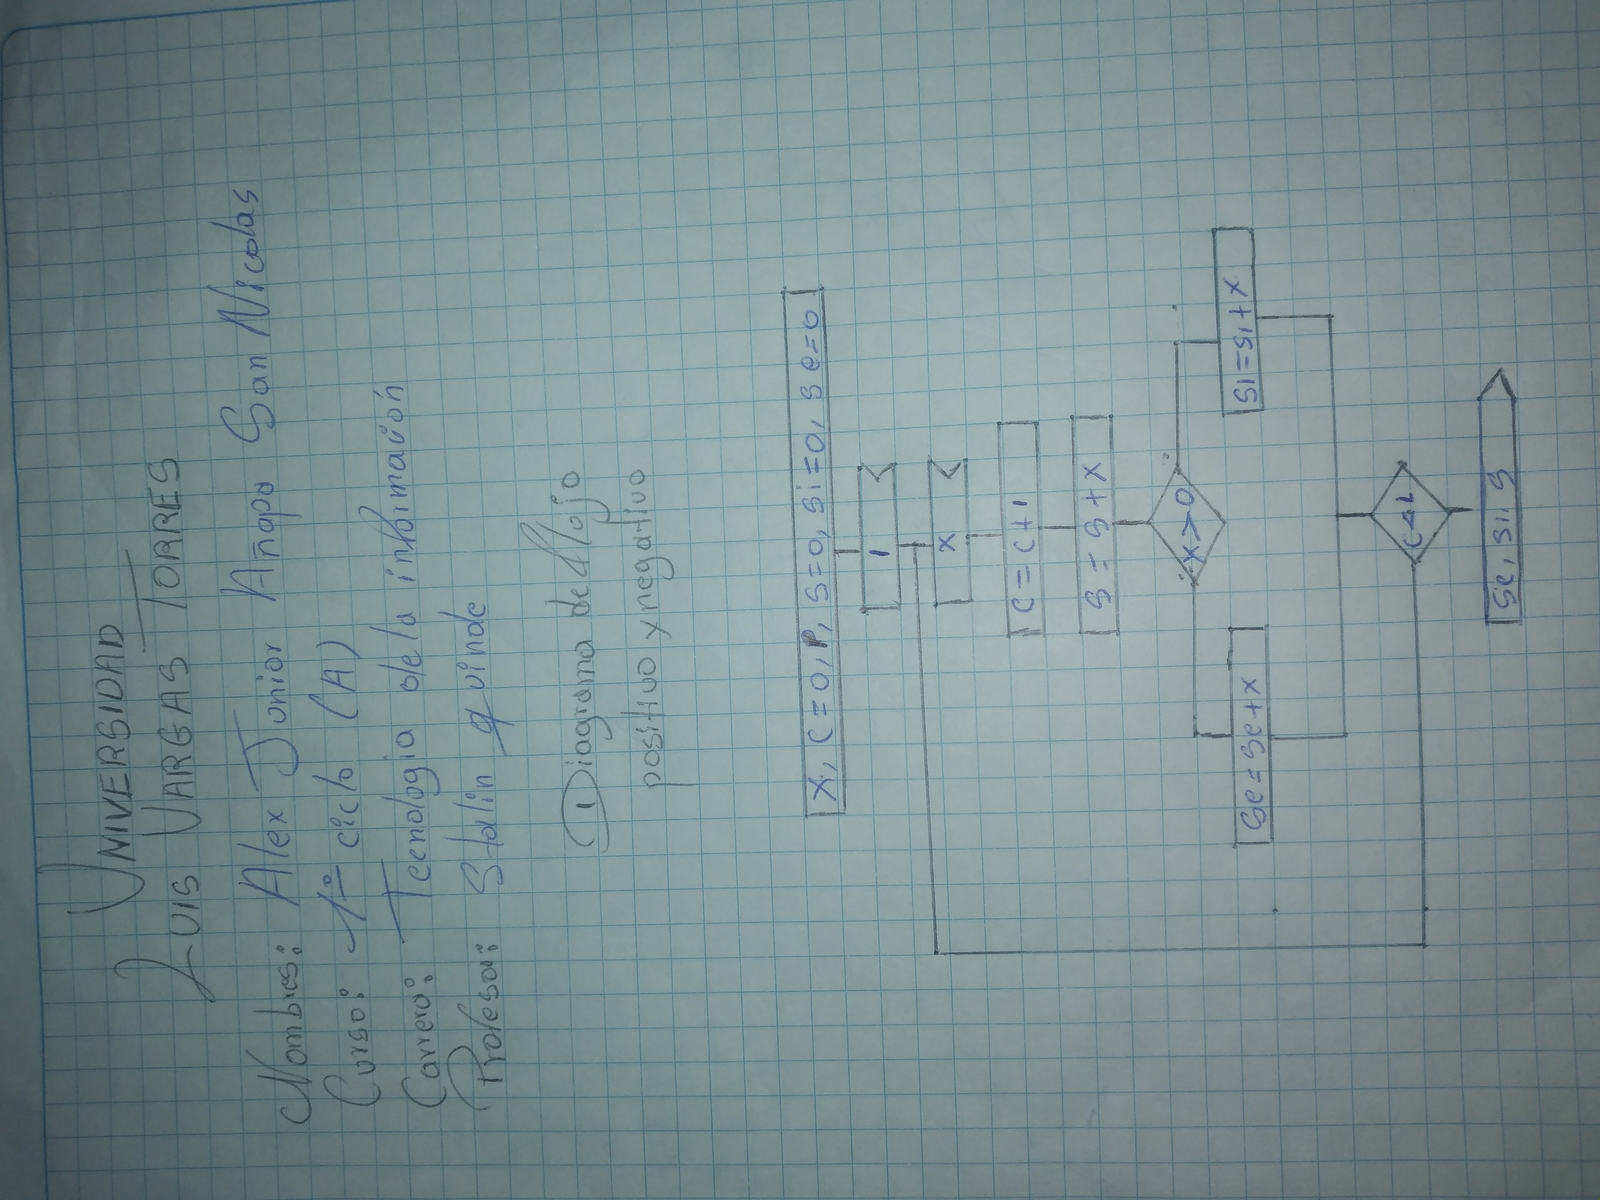 UNIVERSIDAD
LUIS VARGAS TORRES
Nombres: Alex Junior Añapa San Nicolas
Curso: 1º ciclo (A)
Carrera: Tecnologia de la información
Profesor: Stalin quinde
Diagrama de flujo
positivo y negativo
X, C=0, P, S=0, Si=0, Se=0
1
X
C=C+1
S=S+X
X>0
Se=Se+X
Si=Si+X
Se, Si, S